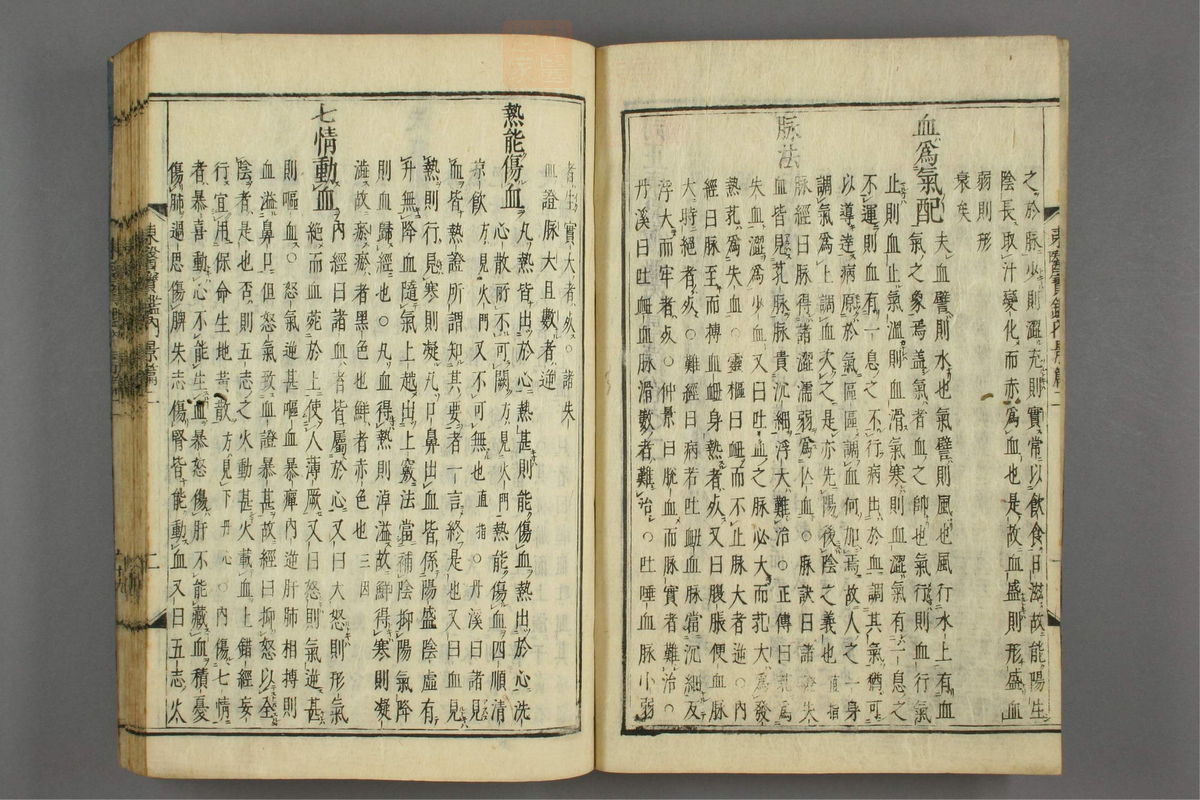 之於脉少則濇充則實常以飲食日滋故能陽生
陰長取汁變化而赤爲血也是故血盛則形盛血
弱則形
衰矣
血爲氣配 夫血譬則水也氣譬則風也風行水上有血
氣之象焉盖氣者血之帥也氣行則血行氣
止則血止氣溫則血滑氣寒則血濇氣有一息之
不運則血有一息之不行病出於血調其氣猶可
以導達病原於氣區區調血何加焉故人之一身
調氣爲上調血次之是亦先陽後陰之義也 直指
脉法 脉經曰脉得諸濇濡弱爲亡血○脉訣曰諸證失
血皆見芤脉脉貴沉細浮大難治○正傳曰芤爲
失血濇爲少血又曰吐血之脉必大而芤大爲發
熱芤爲失血○靈樞曰衂而不止脉大者逆○內
經曰脉至而搏血衂身熱者死又曰腹脹便血脉
大時絕者死○難經曰病若吐衂血脉當沉細反
浮大而牢者死○仲景曰脫血而脉實者難治○
丹溪曰吐衂血脉滑數者難治○吐唾血脉小弱
者生實大者死○諸失
血證脉大且數者逆
熱能傷血 凡熱皆出於心熱甚則能傷血熱出於心洗
心散所不可闕 方見火門 熱能傷血四順清
凉飲 方見火門 又不可無也 直指 ○丹溪曰諸見
血皆熱證所謂知其要者一言終是也又曰血見
熱則行見寒則凝凡口鼻出血皆係陽盛陰虛有
升無降血隨氣上越出上竅法當補陰抑陽氣降
則血歸經也○凡血得熱則淖溢故鮮得寒則凝
濇故瘀瘀者黑色也鮮者赤色也 三因
七情動血 內經曰諸血者皆屬於心又曰大怒則形氣
絕而血菀於上使人薄厥又曰怒則氣逆甚
則嘔血○怒氣逆甚嘔血暴癉內逆肝肺相搏則
血溢鼻口但怒氣致血證暴甚故經曰抑怒以全
陰者是也否則五志之火動甚火載血上錯經妄
行宜用保命生地芩散 方見下 丹心 ○內傷七情
者暴喜動心不能生血暴怒傷肝不能藏血積憂
傷肺過思傷脾失志傷腎皆能動血又曰五志火
東醫寶鑑內景篇二